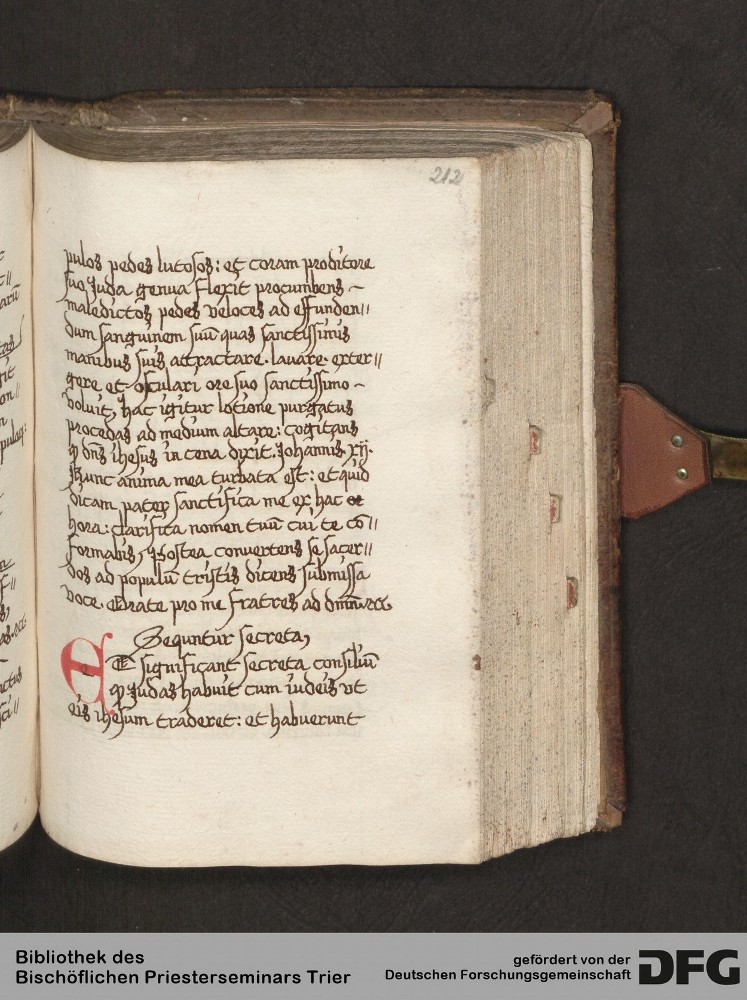 212
pulos pedes lutosos: et coram proditore
suo Juda genua flexit procumbens ~
maledictos pedes veloces ad effunden//
dum sanguinem suū quas sanctissimis
manibus suis attractare. lavare. exter//
gere et osculari ore suo sanctissimo ~
voluit, hac igitur lotione purgatus
procedas ad medium altare: cogitans
ꝙ dn̄s ihesus in cena dixit. Johannis. xij.
Nunc anima mea turbata est: et quid
dicam pater sanctifica me ex hac
hora: clarifica nomen tuū cui te cō//
formabis, Postea convertens se sacer//
dos ad populū tristis dicens submissa
voce. Orate pro me fratres ad
Sequntur secreta,
ET significant secreta consiliū
ꝙ Judas habuit cum iudeis vt
eis ihesum traderet: et habuerunt
Bibliothek des
Bischöflichen Priesterseminars Trier
gefördert von der
Deutschen Forschungsgemeinschaft
DFG